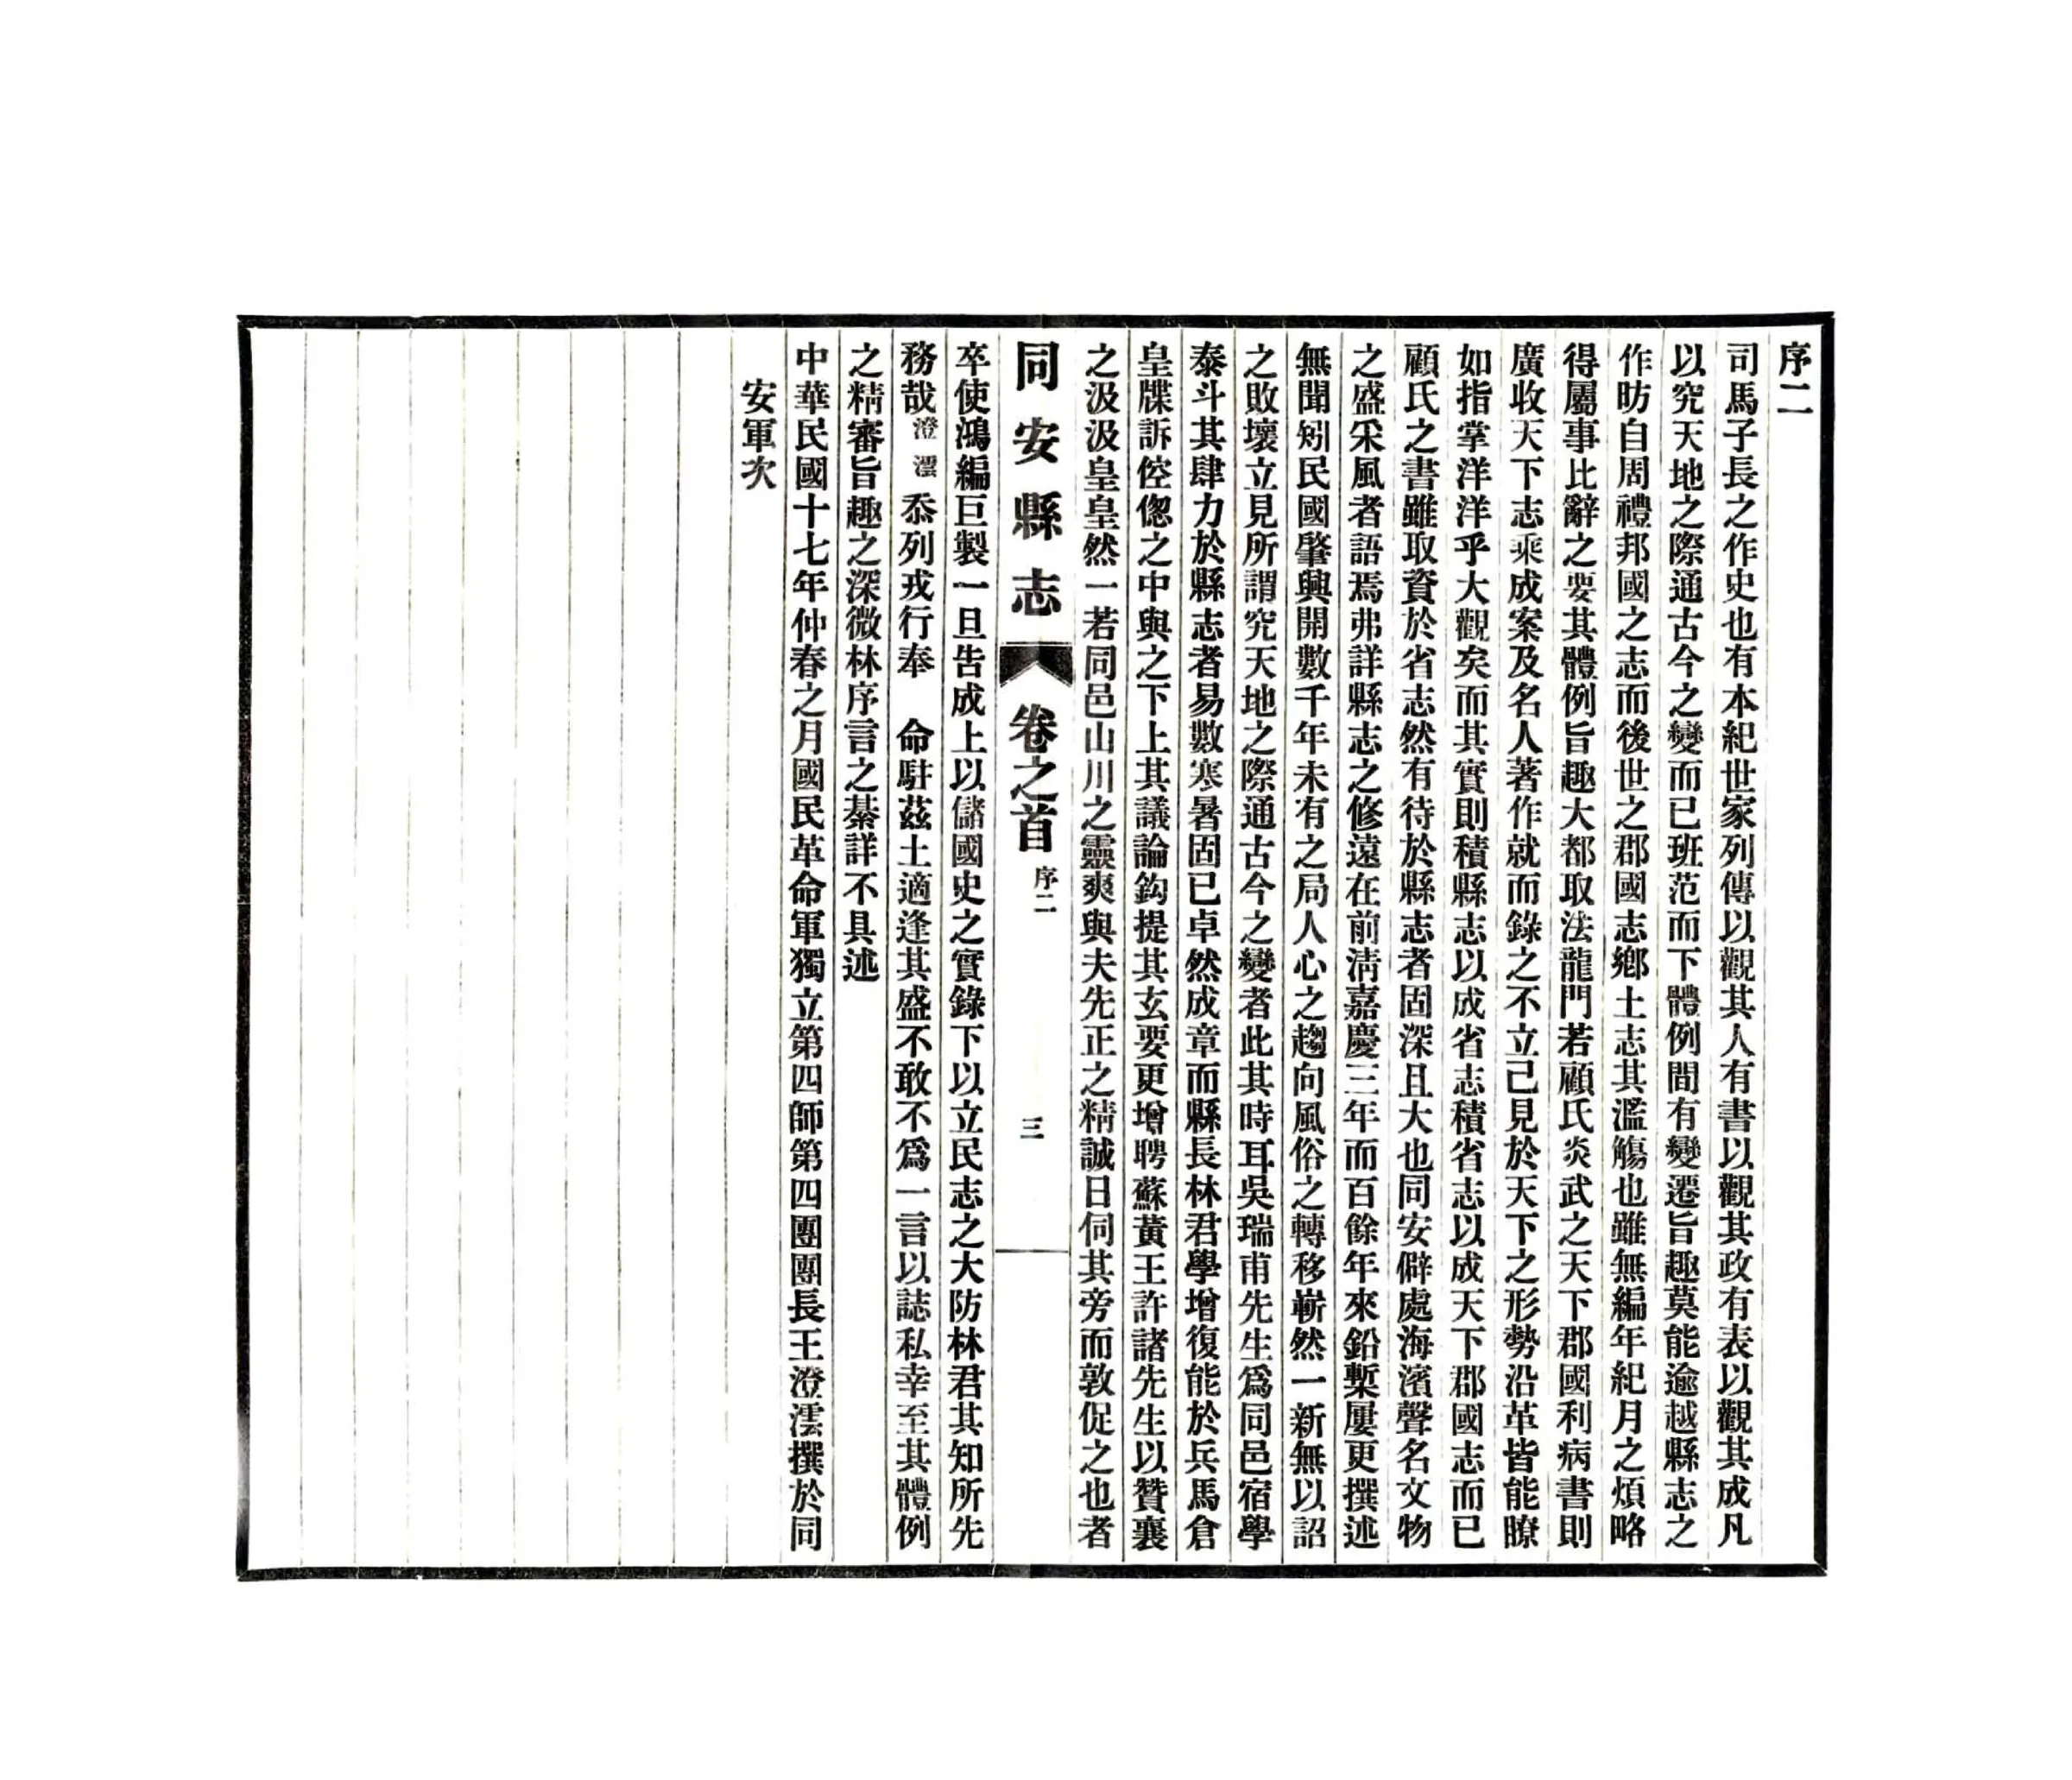 序二
司馬子長之作史也有本紀世家列傳以觀其人有書以觀其政有表以觀其成凡
以究天地之際通古今之變而已班范而下體例間有變遷旨趣莫能逾越縣志之
作昉自周禮邦國之志而後世之郡國志鄉土志其濫觴也雖無編年紀月之煩略
得屬事比辭之要其體例旨趣大都取法龍門若顧氏炎武之天下郡國利病書則
廣收天下志乘成案及名人著作就而錄之不立己見於天下之形勢沿革皆能瞭
如指掌洋洋乎大觀矣而其實則積縣志以成省志積省志以成天下郡國志而已
顧氏之書雖取資於省志然有待於縣志者固深且大也同安僻處海濱聲名文物
之盛采風者語焉弗詳縣志之修遠在前清嘉慶三年而百餘年來鉛槧屢更撰述
無聞矧民國肇興開數千年未有之局人心之趨向風俗之轉移嶄然一新無以詔
之敗壞立見所謂究天地之際通古今之變者此其時耳吳瑞甫先生爲同邑宿學
泰斗其肆力於縣志者易數寒暑固已卓然成章而縣長林君學增復能於兵馬倉
皇牒訴倥偬之中與之下上其議論鈎提其玄要更增聘蘇黃王許諸先生以贊襄
之汲汲皇皇然一若同邑山川之靈爽與夫先正之精誠日伺其旁而敦促之也者
同安縣志 卷之首 序二 三
卒使鴻編巨製一旦告成上以儲國史之實錄下以立民志之大防林君其知所先
務哉澄澐忝列戎行奉 命駐茲土適逢其盛不敢不爲一言以誌私幸至其體例
之精審旨趣之深微林序言之綦詳不具述
中華民國十七年仲春之月國民革命軍獨立第四師第四團團長王澄澐撰於同
安軍次